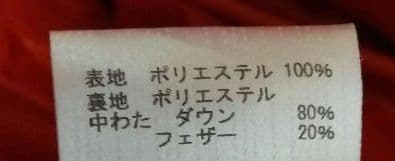 表地 ポリエステル 100%
裏地 ポリエステル
中わた ダウン 80%
フェザー 20%